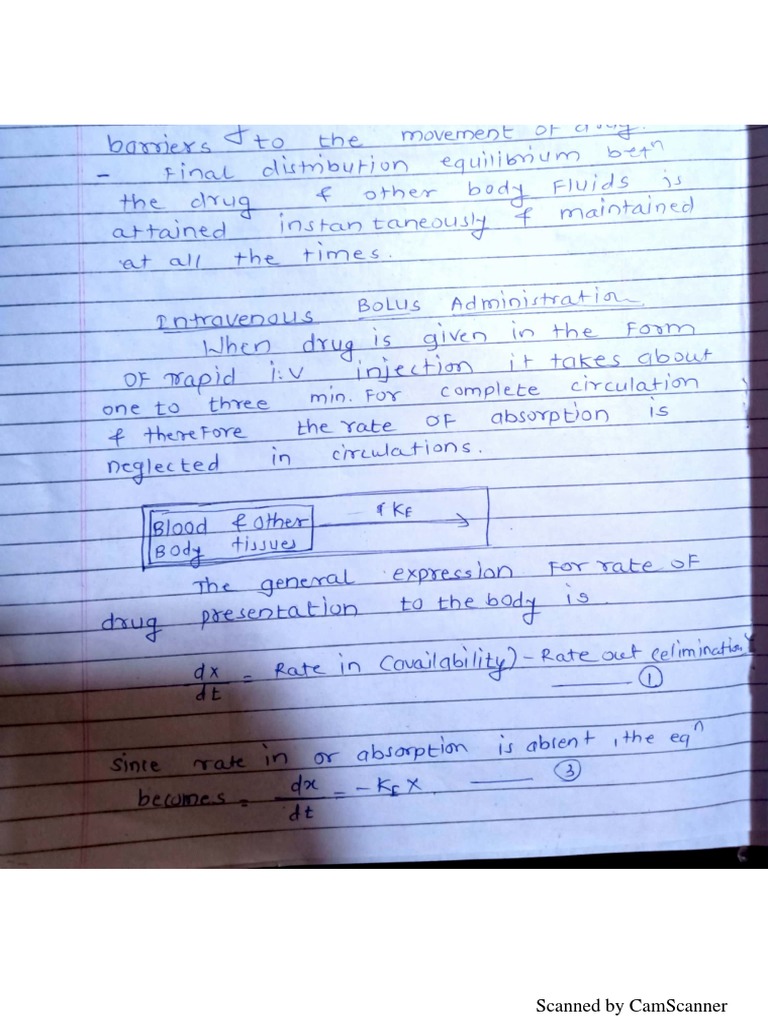 barriers to the movement of drug.
- Final distribution equilibrium betⁿ
the drug & other body Fluids is
attained instantaneously & maintained
at all the times.
Intravenous Bolus Administration
When drug is given in the Form
OF rapid i.v injection it takes about
one to three min. For complete circulation
& therefore the rate OF absorption is
neglected in circulations.
Blood & other
Body tissues
KE
The general expression For rate OF
drug presentation to the body is
dx/dt = Rate in (availability) - Rate out (elimination) ①
Since rate in or absorption is absent, the eqⁿ
becomes = dx/dt = -KE X. ③
Scanned by CamScanner